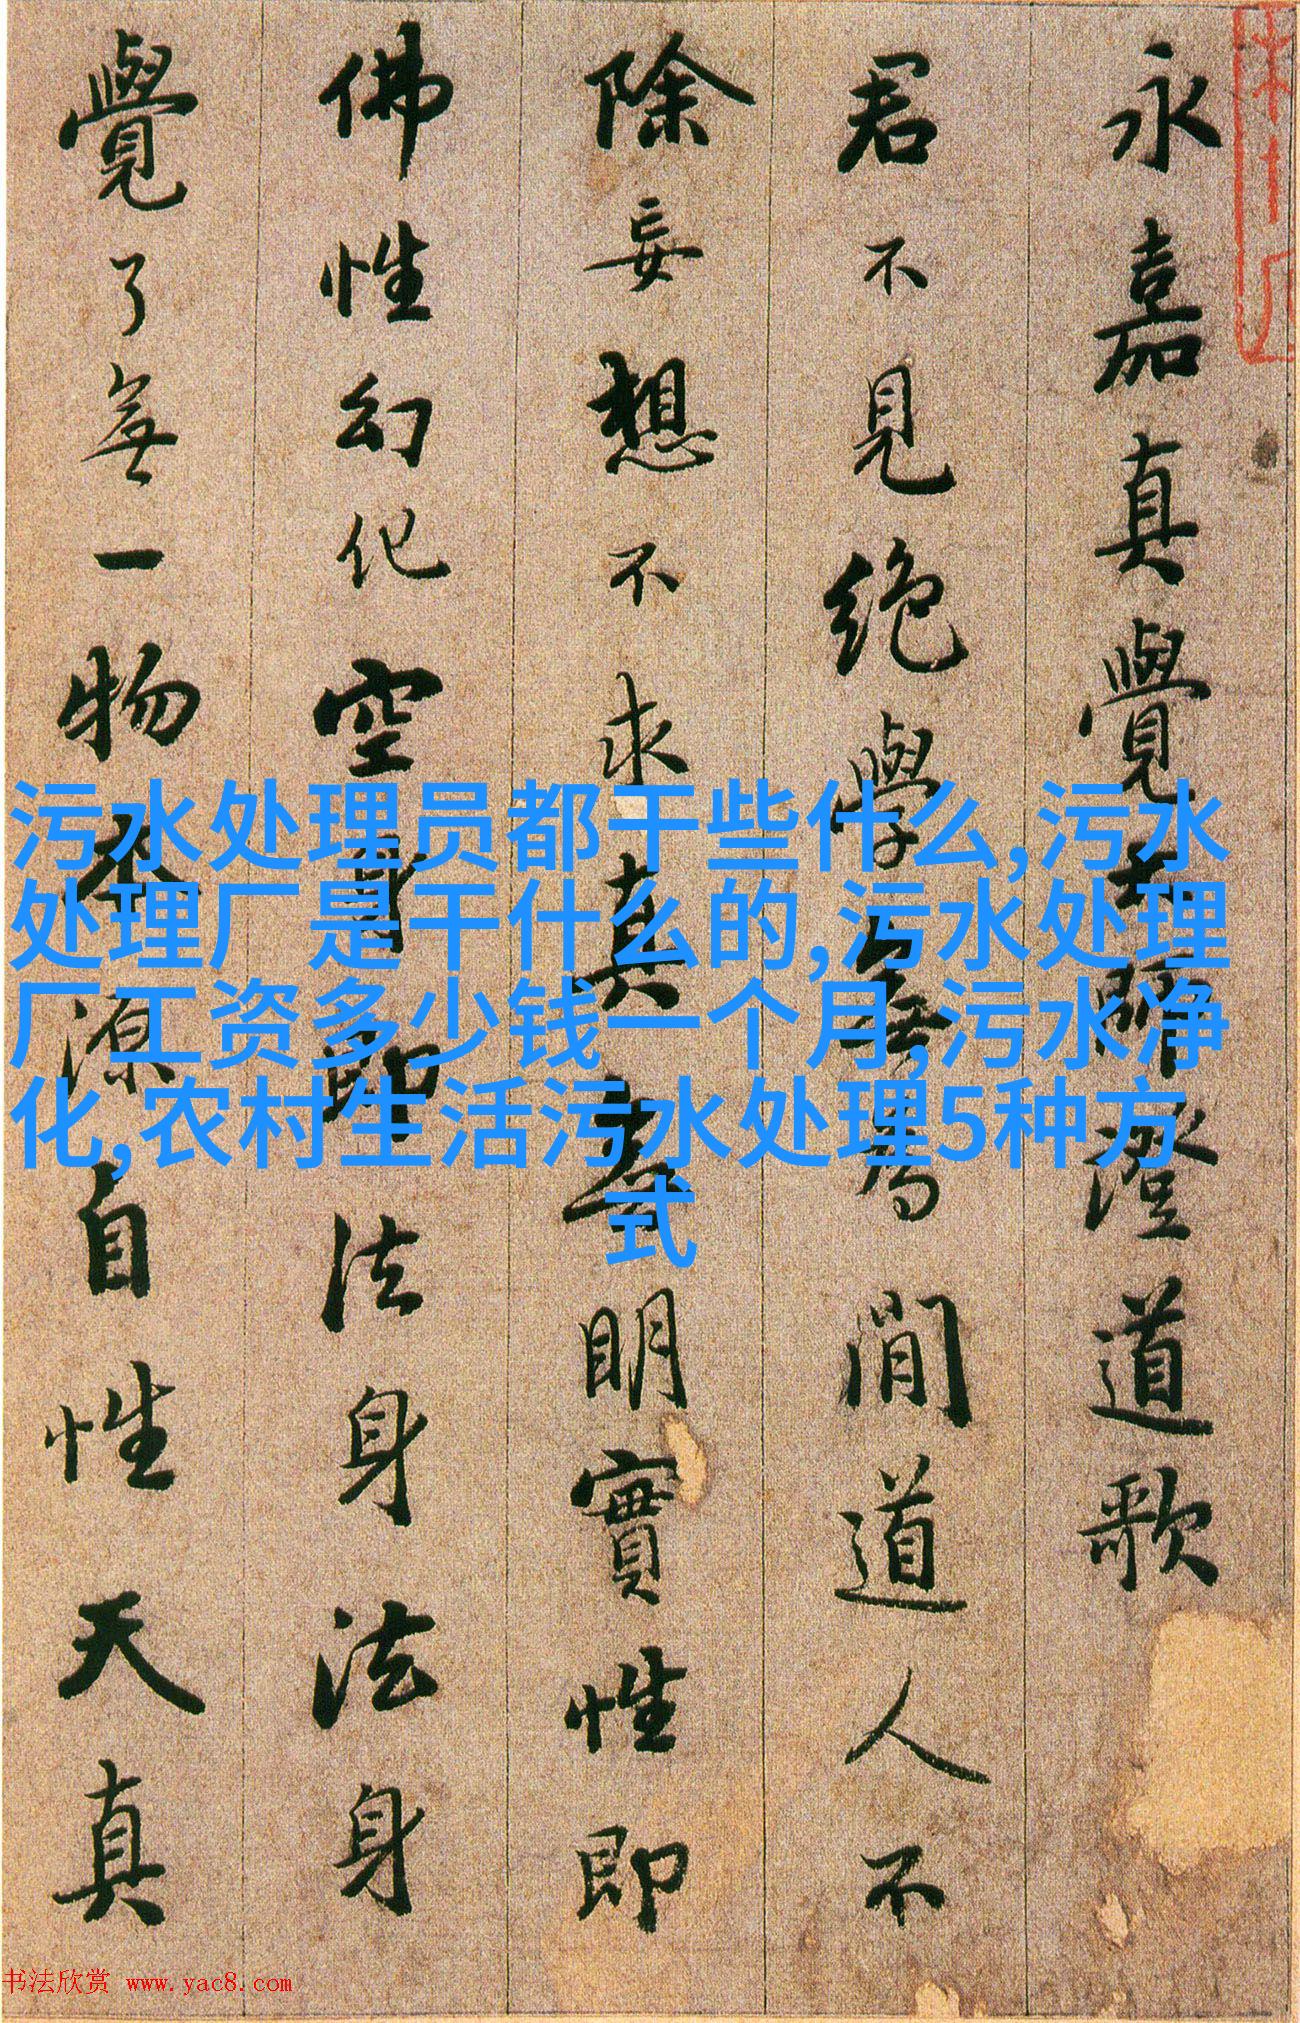 永嘉真覺大師澄道歌
君不見絶學無為閒道人不
除妄想不求真無明實性即
佛性幻化空身即法身法身
覺了無一物本源自性天真
污水处理员都干些什么,污水
处理厂是干什么的,污水处理
厂工资多少钱一个月,污水净
化,农村生活污水处理5种方
式
书法欣赏 www.yac8.com